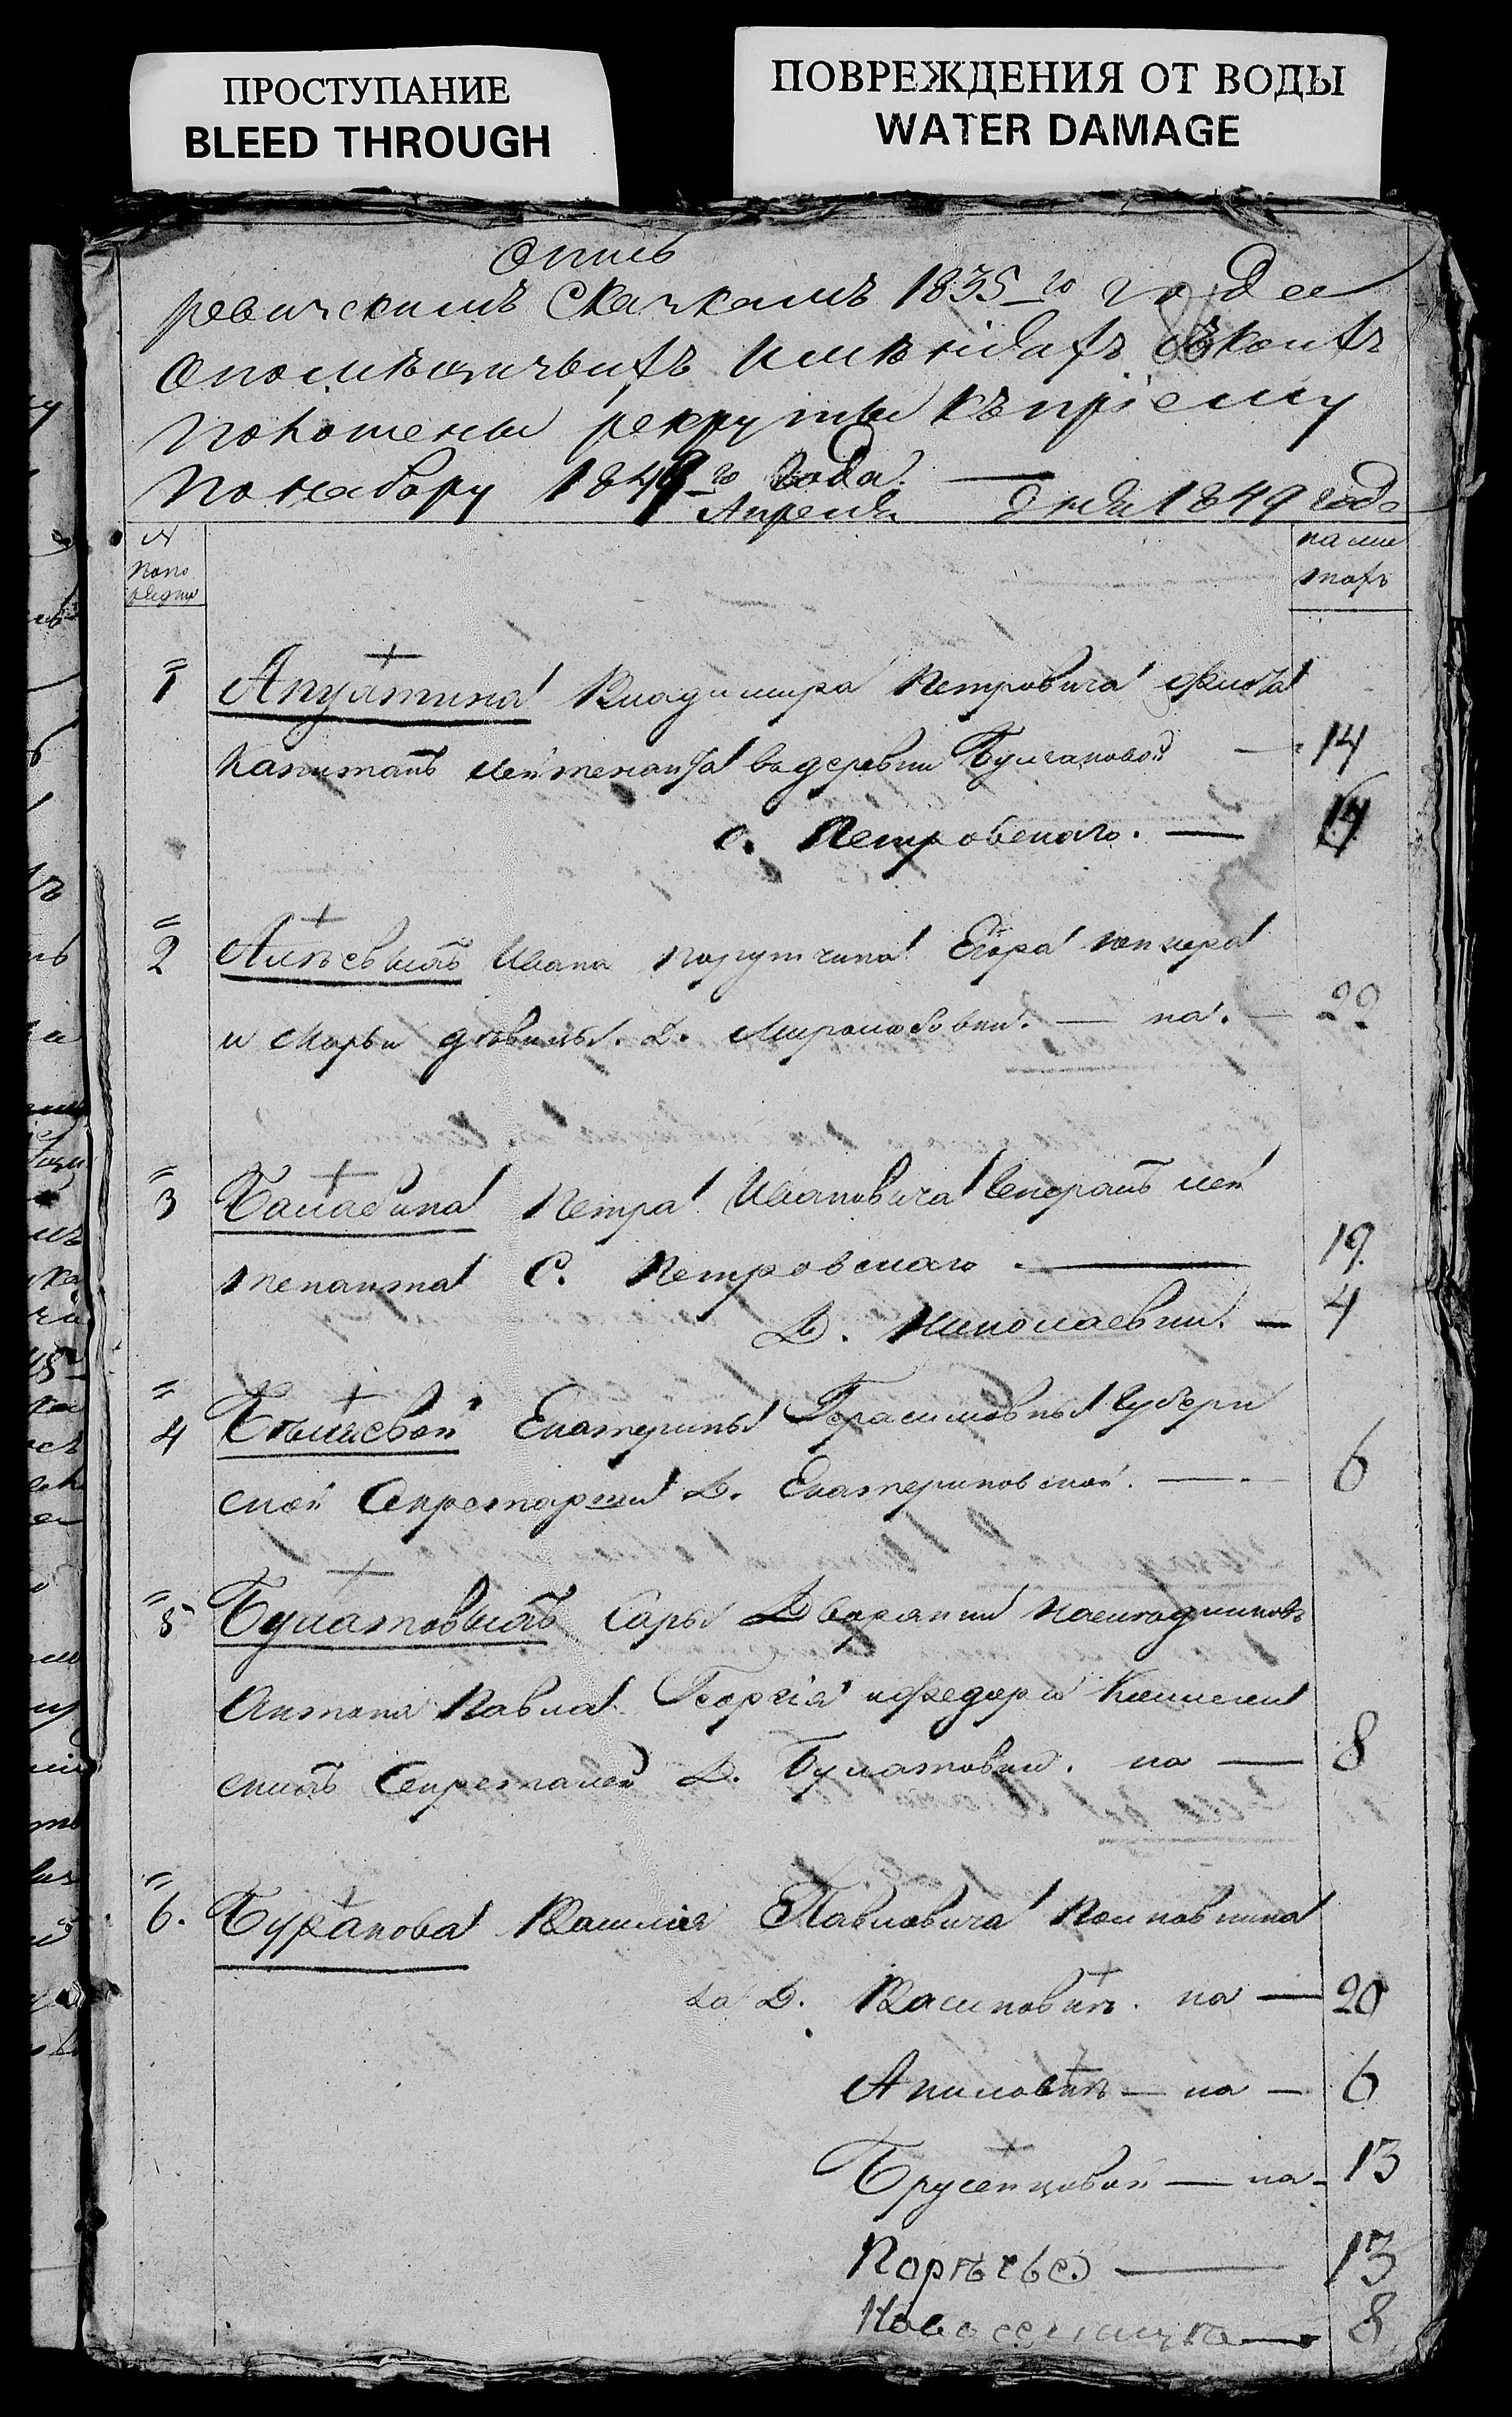 ПРОСТУПАНИЕ
BLEED THROUGH
ПОВРЕЖДЕНИЯ ОТ ВОДЫ
WATER DAMAGE
Опись
ревискимъ Сказкамъ 1835-го года
Опомѣщичьихъ имѣніяхъ
рекруты къ пріему
По набору 1849-го года. —
Апреля дня 1849 года
№
По по
рядку
на лис
тахъ
1 Апухтина Владимира Петровича флота
Капитанъ лейтенанта въ деревни Булгаковой — 14
с. Петровскаго. — 14
2 Ивана порутчика Егора юнкера
и Марьи девицы. Д. Миролюбовки. — на. — 29
3 Балабина Петра Ивановича Генералъ лей
тенанта С. Петровскаго — 19.
Д. Николаевки. — 4
4 Екатерины Герасимовны Губерн
ской Секретарши Д. Екатериновской. — 6
5 Булатовыхъ Сарры Дворянки наследниковъ
Антона Павла Георгія и Федора Коллеж
скихъ Секретарей Д. Булатовки. на — 8
6. Бурханова Василія Павловича Полковника
Д. Васильевки. на — 20
на — 6
Брусенцовой — на - 13
Порѣчье. — 13
Новоселицка — 8